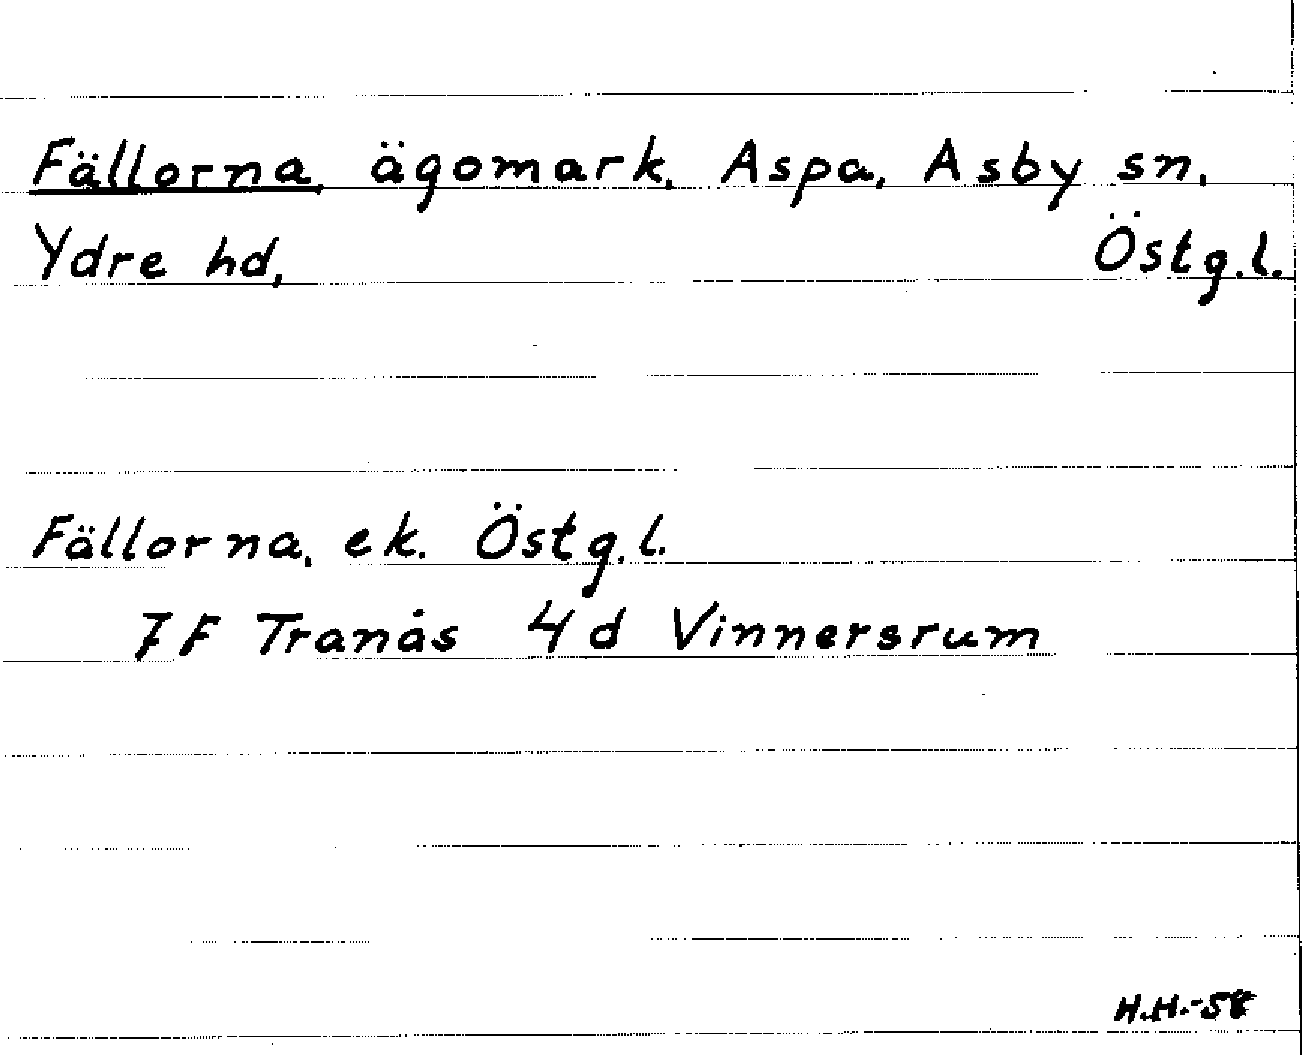 Fällorna, ägomark, Aspa, Asby sn,
Ydre hd, Östg.l.
Fällorna, ek. Östg.l.
7F Tranås 4d Vinnersrum
H.H.-58